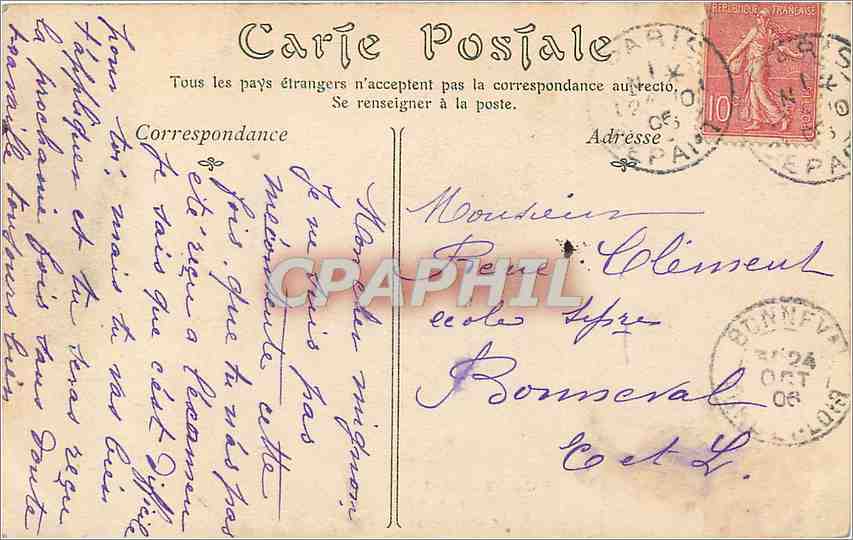 Carte Postale
Tous les pays étrangers n'acceptent pas la correspondance au recto.
Se renseigner à la poste.
Correspondance
Adresse
REPUBLIQUE FRANÇAISE
10c
PARIS
DEPART
Mon cher mignon
Je ne suis pas
mécontente cette
fois, que tu n'as pas
été reçu a l'examen
Je sais que c'est difficile
pour toi, mais tu vas bien
t'appliquer et tu seras reçu
la prochaine fois sans doute
travaille toujours bien
Monsieur
René Clément
école Spre
Bonneval
E et L.
BONNEVAL
24
OCT
06
CPAPHIL